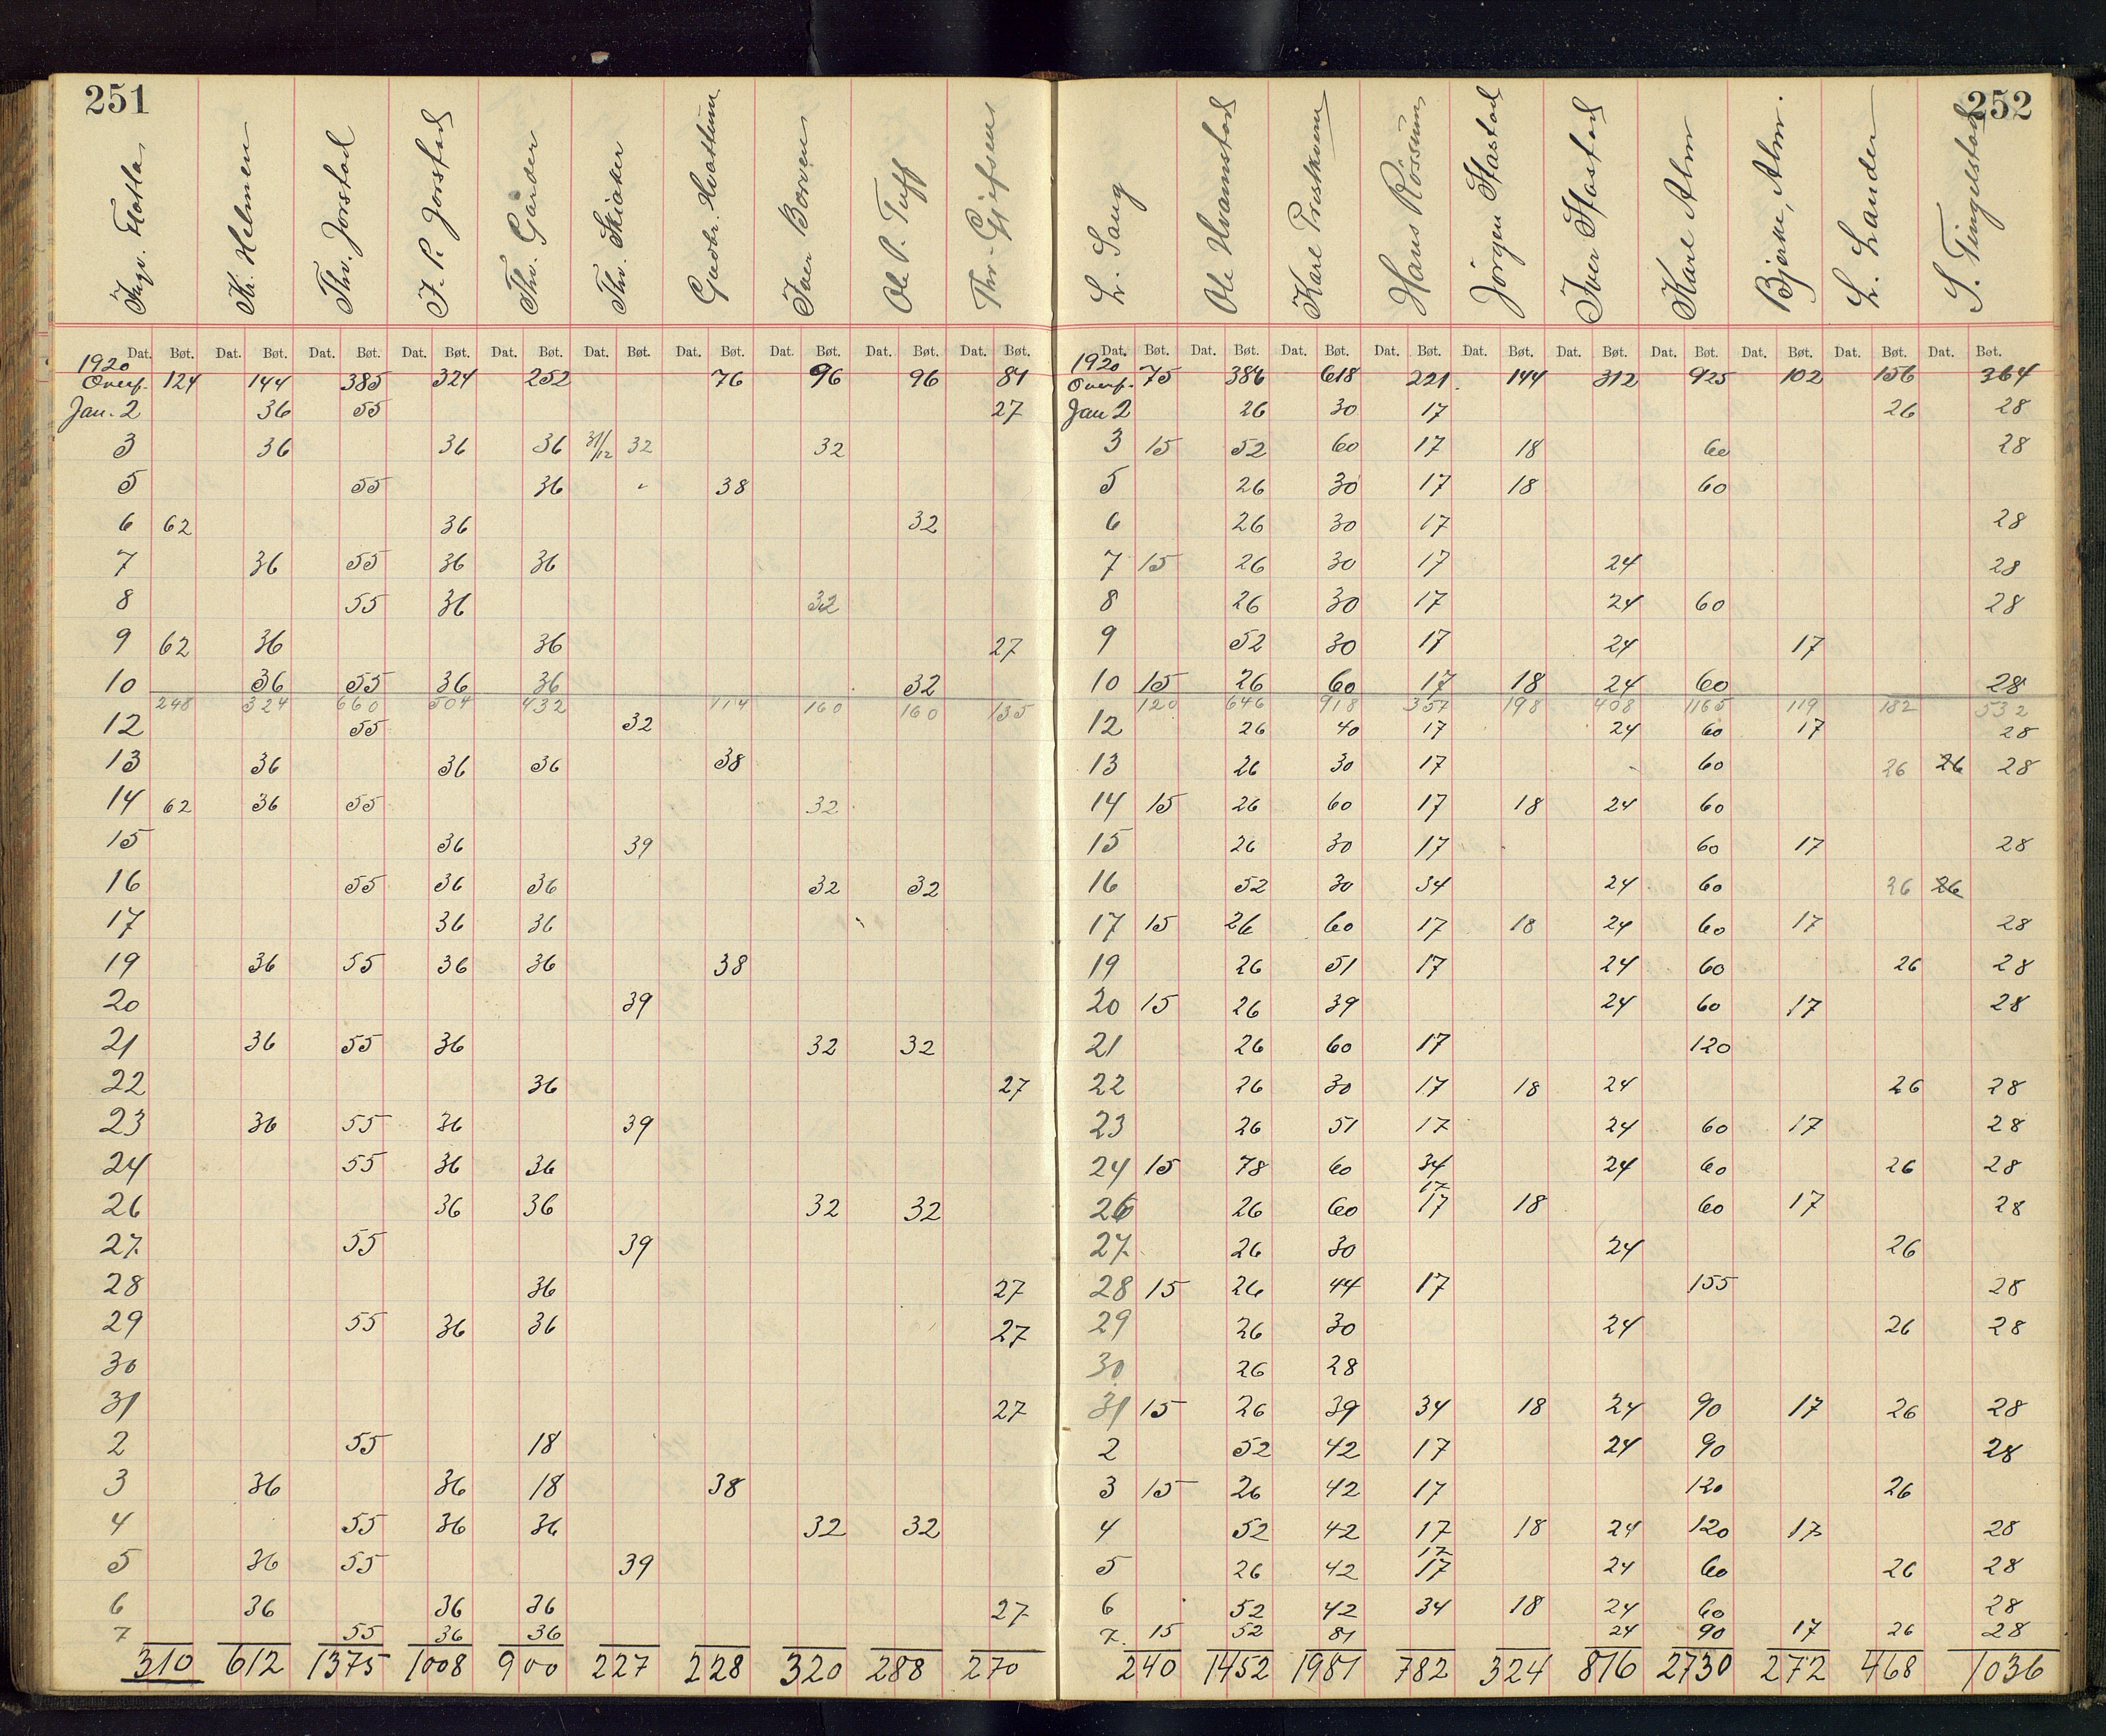 251
Ingv. Flatla Kr. Helmen Thv. Jorstad J. P. Jorstad Thv. Garder Thv. Skiaker Gudbr. Hvattum Iver Borven Ole P. Tuff Thr. Gjefsen
Dat. Bøt. Dat. Bøt. Dat. Bøt. Dat. Bøt. Dat. Bøt. Dat. Bøt. Dat. Bøt. Dat. Bøt. Dat. Bøt. Dat. Bøt.
1920
Overf. 124 144 385 324 252 76 96 96 81
Jan. 2 36 55 27
3 36 36 36 31/12 32 32
5 55 36 38
6 62 36 32
7 36 55 36 36
8 55 36 32
9 62 36 36 27
10 36 55 36 36 32
248 324 660 504 432 114 160 160 135
12 55 32
13 36 36 36 38
14 62 36 55 32
15 36 39
16 55 36 36 32 32
17 36 36
19 36 55 36 36 38
20 39
21 36 55 36 32 32
22 36 27
23 36 55 36 39
24 55 36 36
26 36 36 32 32
27. 55 39
28 36 27
29 55 36 36 27
30
31 27
2 55 18
3 36 36 18 38
4 55 36 36 32 32
5 36 55 39
6 36 36 36 27
7 55 36 36
310 612 1375 1008 900 227 228 320 288 270
252
L. Saug Ole Hvamstad Kare Prestkvern Hans Røssum Jörgen Hastad Iver Hastad Kare Alm Bjerke, Alm. L. Lander S. Tingelstad
Dat. Bøt. Dat. Bøt. Dat. Bøt. Dat. Bøt. Dat. Bøt. Dat. Bøt. Dat. Bøt. Dat. Bøt. Dat. Bøt. Dat. Bøt.
1920
Overf. 75 386 618 221. 144 312 925 102 156 364
Jan 2 26 30 17 26 28
3 15 52 60 17 18 60 28
5 26 30 17 18 60
6 26 30 17 28
7 15 26 30 17 24 28
8 26 30 17 24 60 28
9 52 30 17 24 17
10 15 26 60 17 18 24 60 28
120 646 918 357 198 408 1165 119 182 532
12 26 40 17 24 60 17 28
13 26 30 17 60 26 26 28
14 15 26 60 17 18 24 60
15 26 30 17 60 17 28
16 52 30 34 24 60 26 26
17 15 26 60 17 18 24 60 17 28
19 26 51 17 24 60 26 28
20 15 26 39 24 60 17 28
21 26 60 17 120
22 26 30 17 18 24 26 28
23 26 51 17 24 60 17 28
24 15 78 60 34 24 60 26 28
17
26 26 60 17 18 60 17 28
27. 26 30 24 26
28 15 26 44 17 155 28
29 26 30 24 26 28
30 26 28
31 15 26 39 34 18 24 90 17 26 28
2 52 42 17 24 90 28
3 15 26 42 17 120 26
4 52 42 17 18 24 120 17 28
17
5 26 42 17 24 60 26 28
6 52 42 34 18 24 60 28
7. 15 52 81 24 90 17 26 28
240 1452 1981 782 324 816 2730 272 468 1036